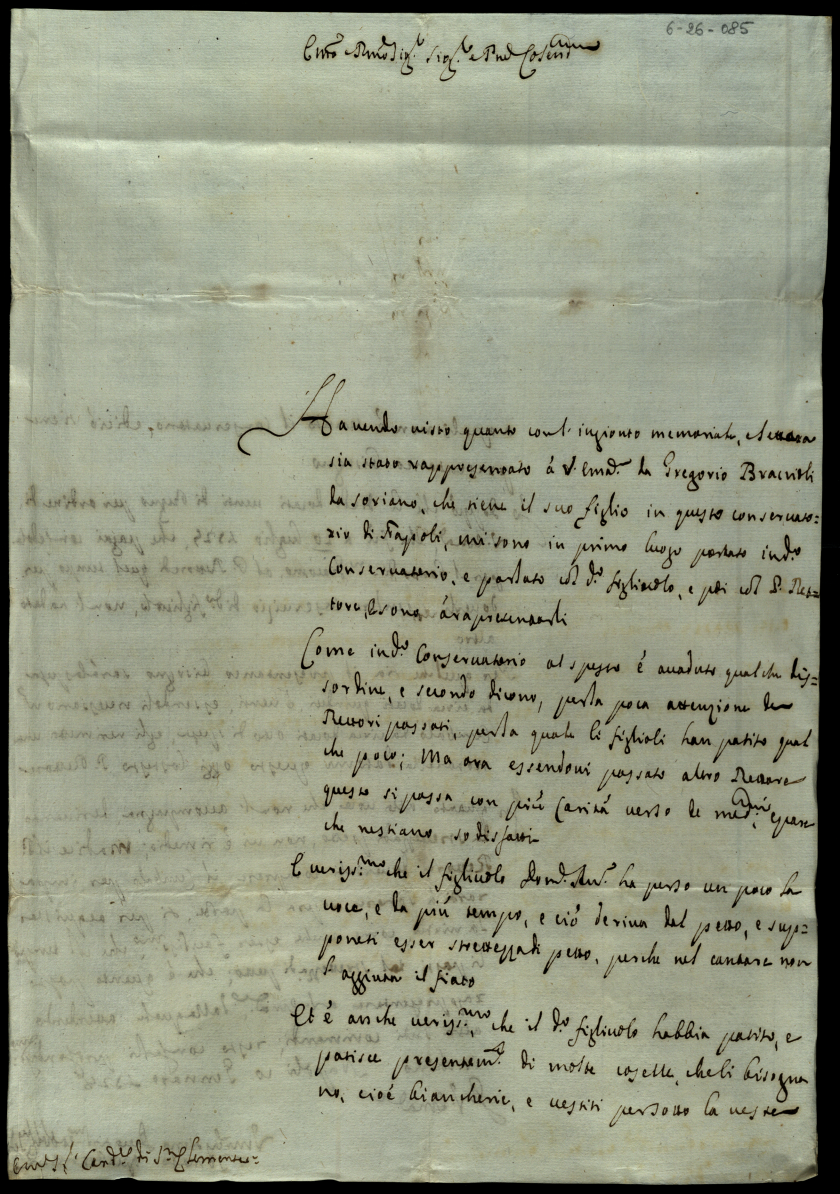 6-26-085
Em̃o e Rmõ Sig.r Sig.r e Pnẽ Col.mo
Havendo visto quanto con l'ingionto memoriale, e lettera
sia stato rappresentato á V. Em.a da Gregorio Braccioli
da Soriano, che tiene il suo figlio in questo conservato=
rio di Napoli, mi sono in primo luogo portato in d.o
Conservatorio, e parlato col d.o figliuolo, e poi col P. Ret=
tore, e sono á rapresentarli
Come in d.o Conservatorio al spesso é accaduto qualche dis=
sordine, e secondo dicono, per la poca attenzione de
Rettori passati, per la quale li figlioli han patito qual
che poco; Ma ora essendovi passato altro Rettore
questo si passa con piú Caritá verso de med.mi, e pare
che restiano sodisfatti
É veriss.mo che il figliuolo Dom.o Ant.o ha perso un poco la
voce, e da piú tempo, e ció deriva dal petto, e sup=
ponesi esser strettezza di petto, perche nel cantare non
l'aggiuta il fiato
Et é anche veriss.mo, che il d.o figliuolo habbia patito, e
patisce presentem.te di molte coselle, che li bisogna
no, cioé biancherie, e vestiti per sotto la veste
Em.o S.r Card.le di S. Clemente=